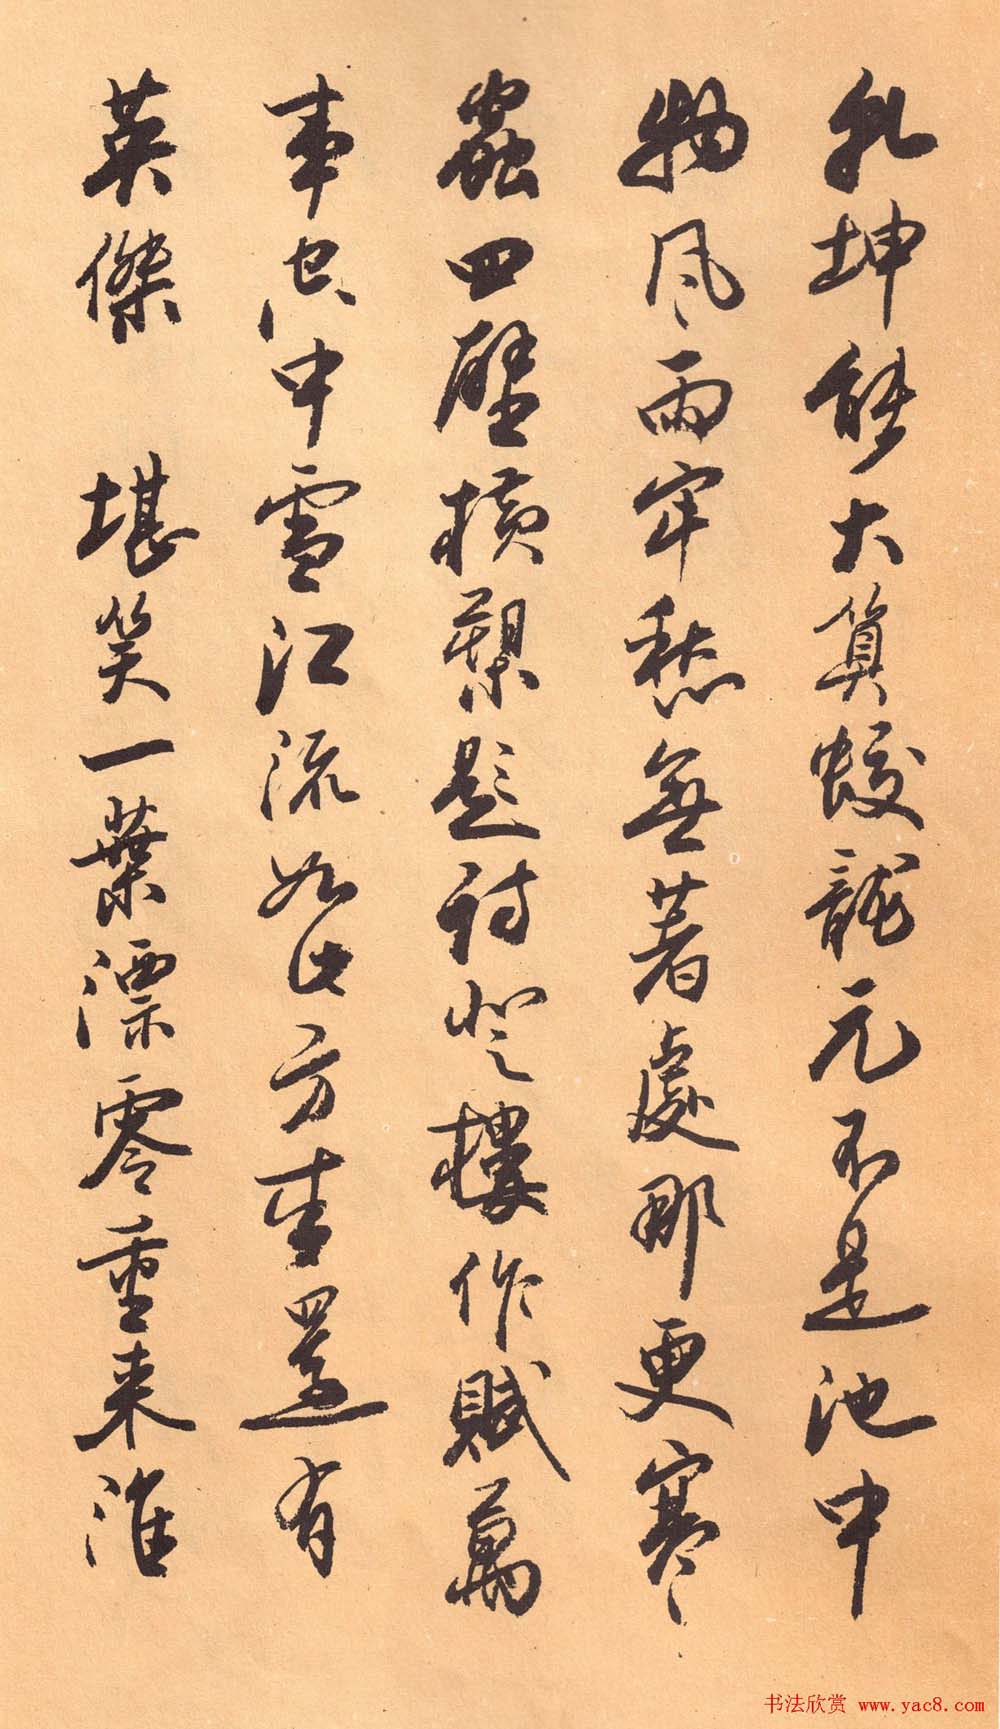 乾坤能大算蛟龍元不是池中
物風雨牢愁無著處那更寒
蟲四壁橫槊題詩登樓作賦萬
事空中雪江流如此方來還有
英傑 堪笑一葉漂零重來淮
书法欣赏 www.yac8.com